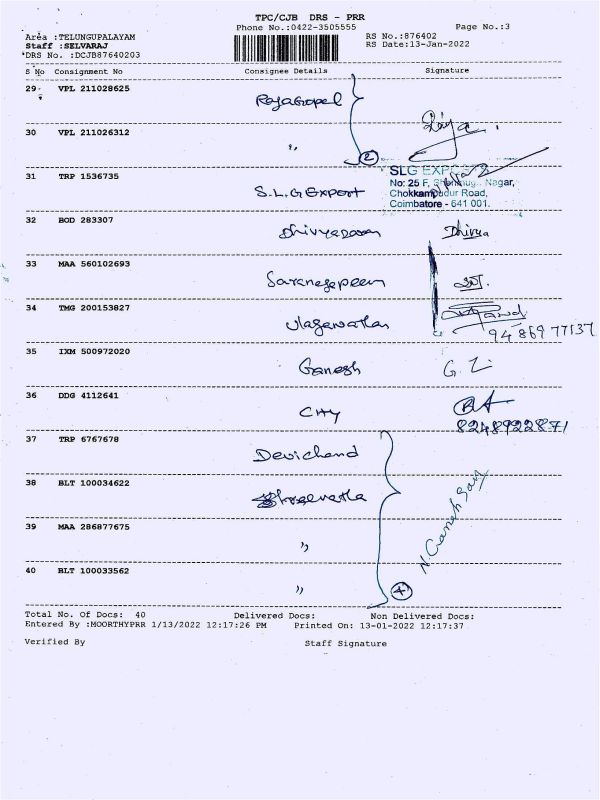 TPC/CJB DRS - PRR
Phone No.:0422-3505555 Page No.:3
Area :TELUNGUPALAYAM RS No.:876402
Staff :SELVARAJ RS Date:13-Jan-2022
DRS No. :DCJB87640203
S No Consignment No Consignee Details Signature
29 VPL 211028625 RajaGopal
30 VPL 211026312 〃 2
SLG EXPORTS
31 TRP 1536735 S.L.G Export No: 25 F, Nagar,
Chokkampudur Road,
Coimbatore - 641 001.
32 BOD 283307 Dhivya
33 MAA 560102693
34 TMG 200153827
94869 77137
35 IXM 500972020 Ganesh G.
36 DDG 4112641
8248922871
37 TRP 6767678 Devichand
38 BLT 100034622
39 MAA 286877675 〃
40 BLT 100033562 〃 4
Total No. Of Docs: 40 Delivered Docs: Non Delivered Docs:
Entered By :MOORTHYPRR 1/13/2022 12:17:26 PM Printed On: 13-01-2022 12:17:37
Verified By Staff Signature